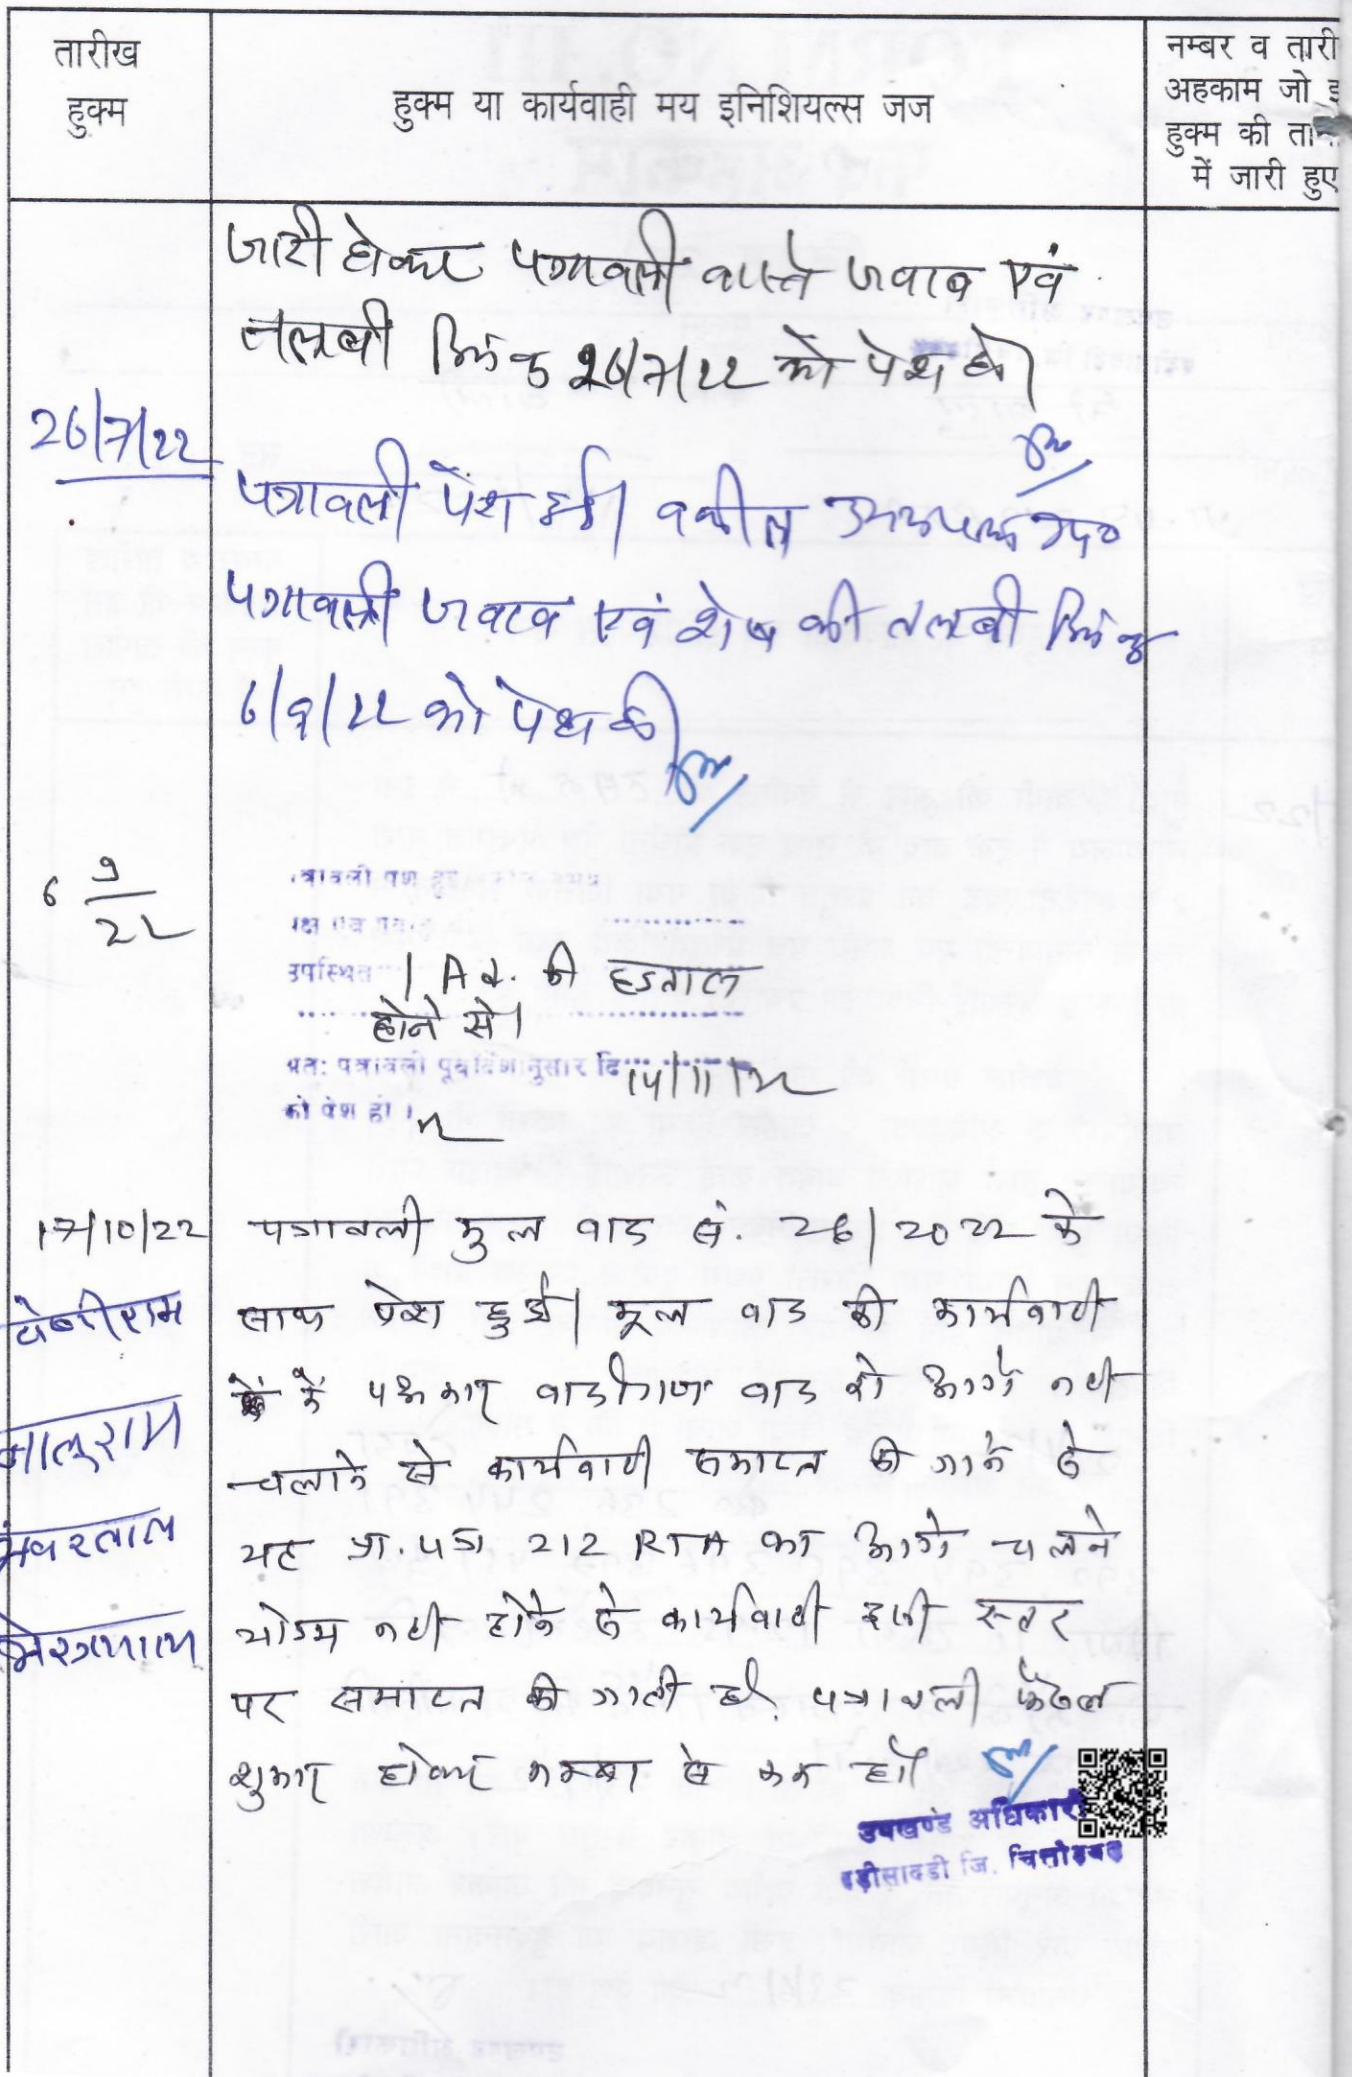 तारीख
हुक्म
हुक्म या कार्यवाही मय इनिशियल्स जज
नम्बर व तारी
अहकाम जो इ
हुक्म की ता
में जारी हुए
जारी होकर पत्रावली वास्ते जवाब एवं
तलबी दिनांक 26/7/22 को पेश हो।
26/7/22
पत्रावली पेश हुई। वकील उभयपक्ष उप०
पत्रावली जवाब एवं शेष की तलबी दिनांक
6/9/22 को पेश हो।
6 9/22
पत्रावली पेश हुई
उपस्थित। Ad. की हडताल
होने से।
अत: पत्रावली पूर्वादेशानुसार दि 14/11/22
को पेश हो।
17/10/22 पत्रावली मुल वाद सं. 26/2022 के
साथ पेश हुई। मूल वाद की कार्यवाही
में पक्षकार वादीगण वाद को आगे नही
चलाने से कार्यवाही समाप्त की जाने से
यह प्रा. पत्र 212 RTA का आगे चलने
योग्य नही होने से कार्यवाही इसी स्तर
पर समाप्त की जाती है. पत्रावली फैसल
शुमार होकर नम्बर से कम हो।
मालुराम
भंवरलाल
उपखण्ड अधिकारी
बड़ीसादडी जि. चित्तोडगढ